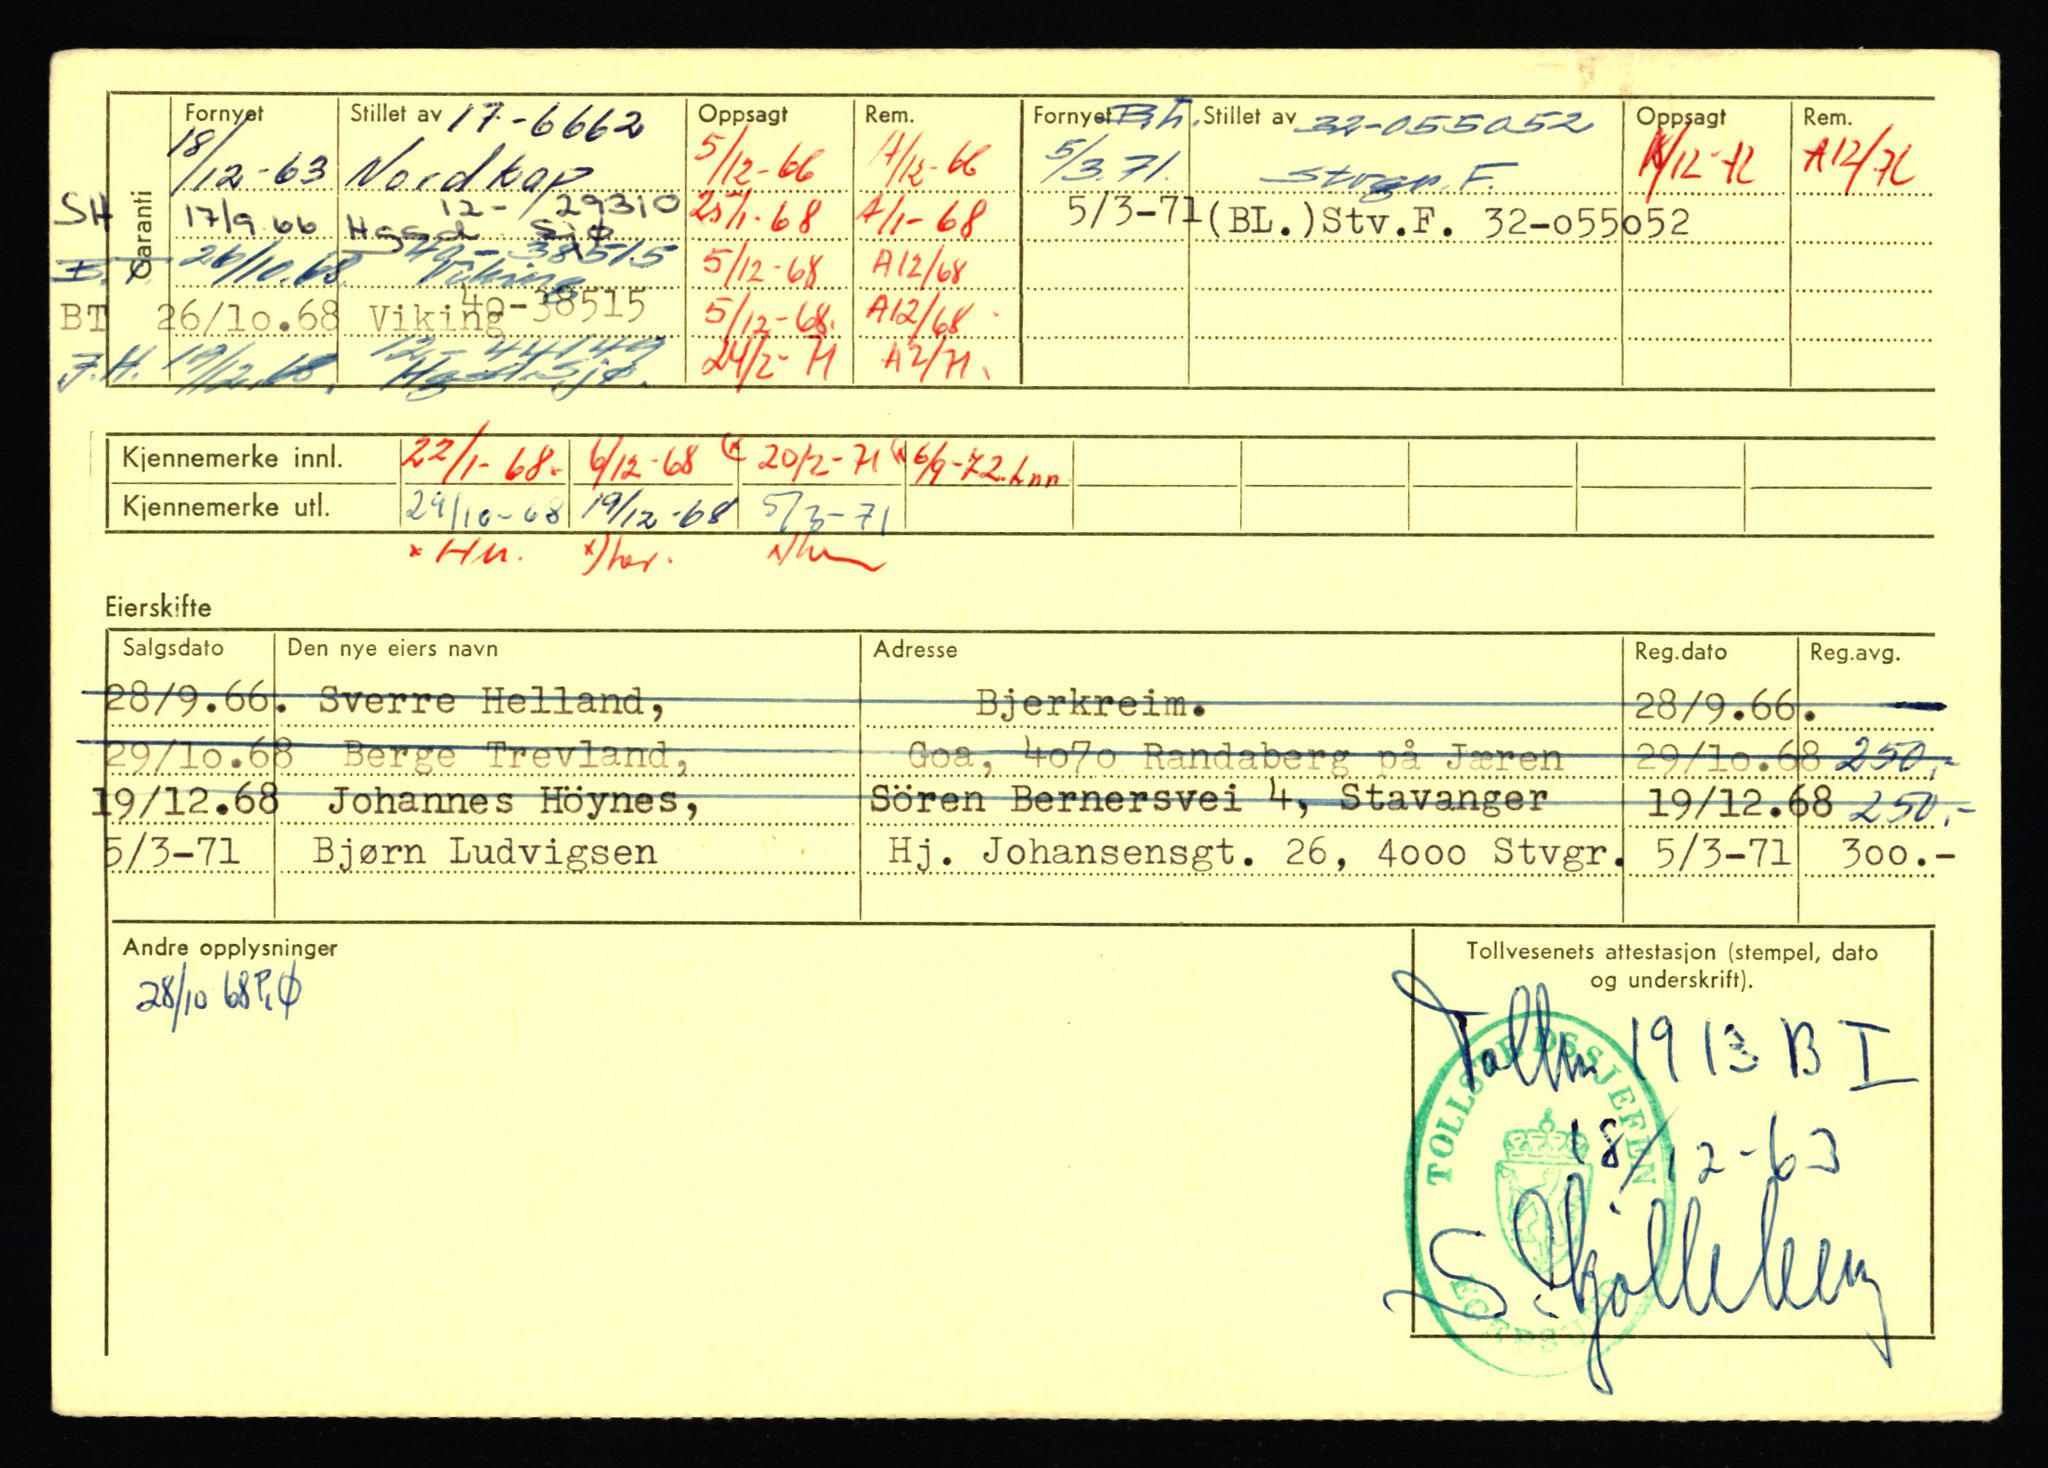 Garanti
Fornyet Stillet av 17-6662 Oppsagt Rem. Fornyet Stillet av 32-055052 Oppsagt Rem.
18/12-63 Nordkap 5/12-66 A/12-66 5/3.71. Stvgr. F. A12/72
SH 17/9 66 12-/29310 25/1-68 A/1-68 5/3-71 (BL.)Stv.F. 32-055052
26/10.68 40-38515 Viking 5/12-68 A12/68
BT 26/1o.68 Viking 4o-38515 5/12-68. A12/68
J.H. 19/12.68. 24/2-71 A2/71.
Kjennemerke innl. 22/1-68. 6/12-68 20/2-71 6/9-72
Kjennemerke utl. 29/10-68 19/12-68 5/3-71
Eierskifte
Salgsdato Den nye eiers navn Adresse Reg.dato Reg.avg.
28/9.66. Sverre Helland, Bjerkreim. 28/9.66.
29/1o.68 Berge Trevland, Goa, 4o7o Randaberg på Jæren 29/1o.68 250.-
19/12.68 Johannes Höynes, Sören Bernersvei 4, Stavanger 19/12.68 250.-
5/3-71 Bjørn Ludvigsen Hj. Johansensgt. 26, 4ooo Stvgr. 5/3-71 3oo.-
Andre opplysninger
28/10 68 P.Ø
Tollvesenets attestasjon (stempel, dato
og underskrift).
1913 B I
18/12-63
TOLLSTEDSSJEFEN